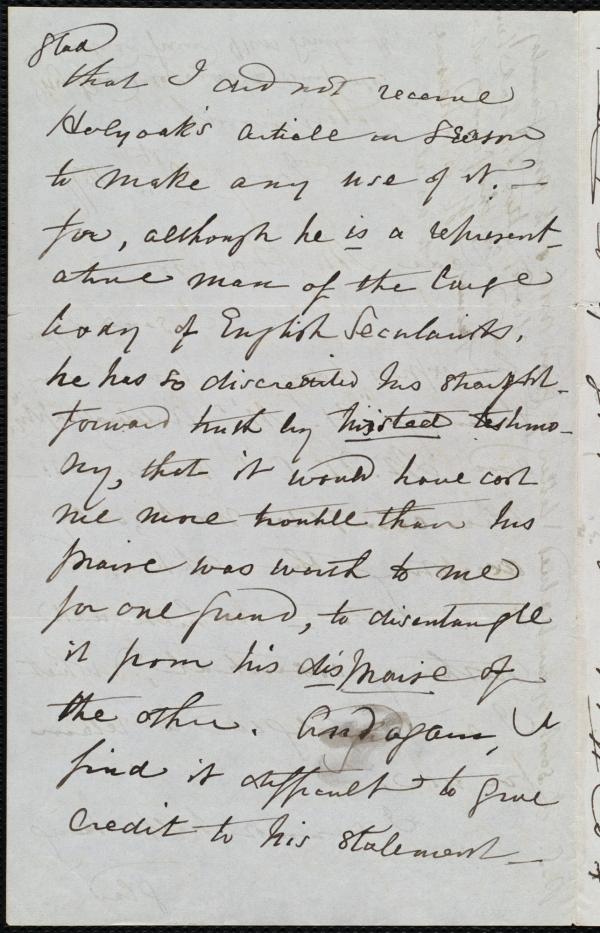 glad
that I did not receive
Holyoak's article in season
to make any use of it. —
for, although he is a represent-
ative man of the large
body of English Secularists,
he has so discredited his straight-
forward truth by twisted testimo-
ny, that it would have cost
me more trouble than his
praise was worth to me
for one friend, to disentangle
it from his dispraise of
the other. And again, I
find it difficult to give
credit to his statement —